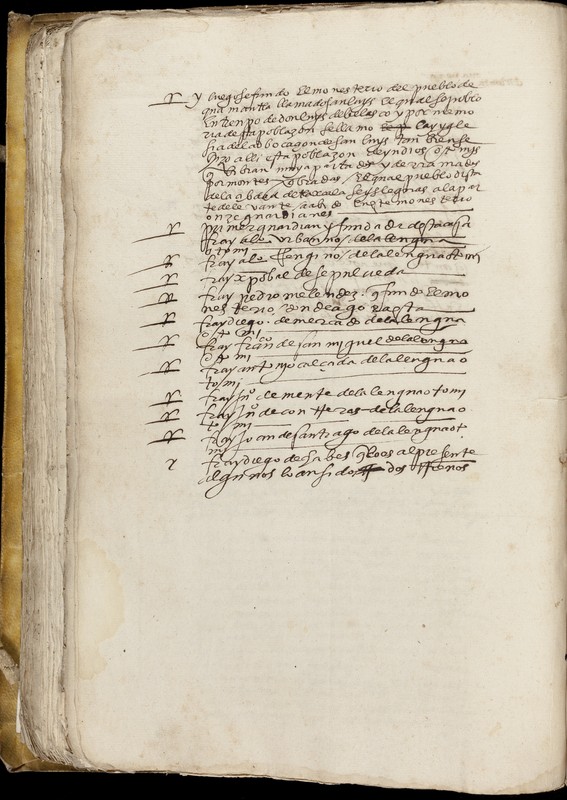 y luego se fundo El monesterio del pueblo de
guamantla llamado san luys El qual se poblo
En tienpo de don luys de belasco y por memo
ria desta poblazon se llamo la ygle
sia de la bocacion de san luys tan bien se
hizo alli esta poblazon de yndios otomys
q̃ Estavan muy apartados y derramados
por montes y
de la cibdad de taxcala seys leguas a la par
te de levante a abido En este monesterio
onze guardianes
primer guardian y fundador desta casa
fray aº urbano / de la lengua
otomi
fray aº Rengino / de la lengua otomi
fray xpobal de sepulveda
fray pedro melendez. q̃ fundo El mo
nesterio donde agora esta
fray diego. de mercado de la lengua
otomi
fray franco de san miguel de la lengua
otomi
fray antonyo calçada de la lengua o
tomi
fray juº clemente de la lengua otomi
fray juº de contreras de la lengua o
tomi
fray joan de santiago de la lengua ot
mi
fray diego de q̃ lo es al presente
algunos lo an sido dos trienos